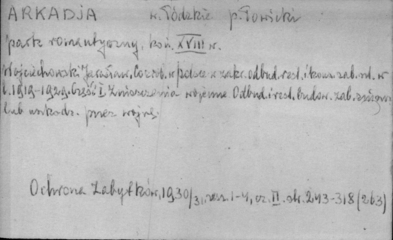 ARKADJA w. Łódzkie p. Łowicki
park romantyczny, koń. XVIII w.
Wojciechowski Jarosław. Co zrob. w Polsce z zakr. odbud. rest. i konserw. zab. nd. w
l. 1919-1929. Część I Zniszczenia wojenne Odbud. i rest. budow. zab. zniszcz.
lub uszkodz. przez wojnę.
Ochrona Zabytków, 1930/31, zesz. 1-4, cz. II. str. 243-318 (263)